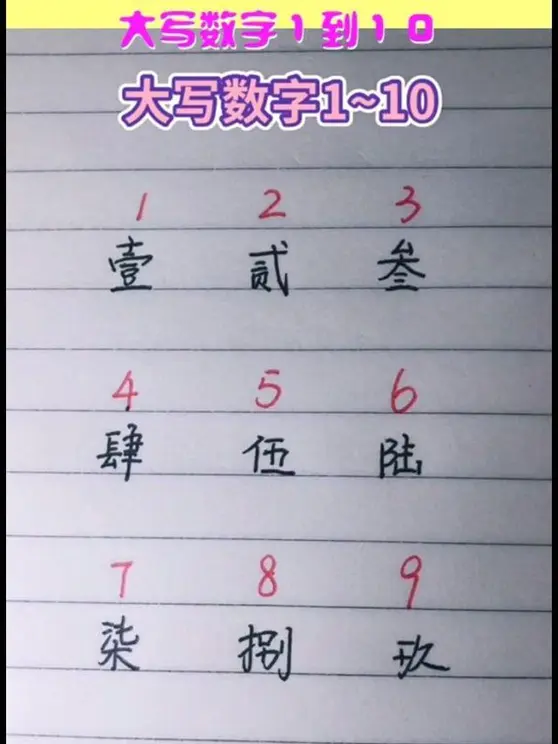 大写数字1到10
大写数字1~10
1 2 3
壹 贰 叁
4 5 6
肆 伍 陆
7 8 9
柒 捌 玖